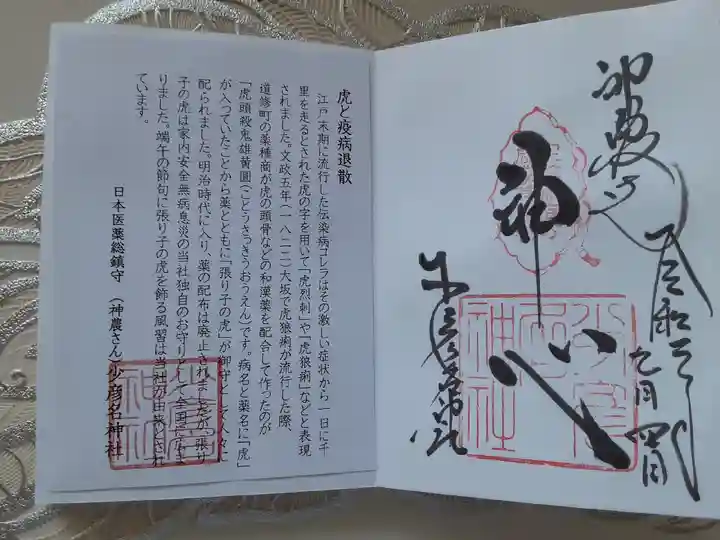 虎と疫病退散
江戸末期に流行した伝染病コレラはその激しい症状から一日に千
里を走るとされた虎の字を用いて「虎烈刺」や「虎狼痢」などと表現
されました。文政五年(一八二二)大坂で虎狼痢が流行した際、
道修町の薬種商が虎の頭骨などの和漢薬を配合して作ったのが
「虎頭殺鬼雄黄圓(ことうさっきうおうえん)です。病名と薬名に「虎」
が入っていたことから薬とともに「張り子の虎」が御守として人々に
配られました。明治時代に入り、薬の配布は廃止されましたが、張り
子の虎は家内安全無病息災の当社独自のお守りとして
りました。端午の節句に張り子の虎を飾る風習は当社が由来とされ
ています。
日本医薬総鎮守 (神農さん)少彦名神社
神心
九月
少彦名神社